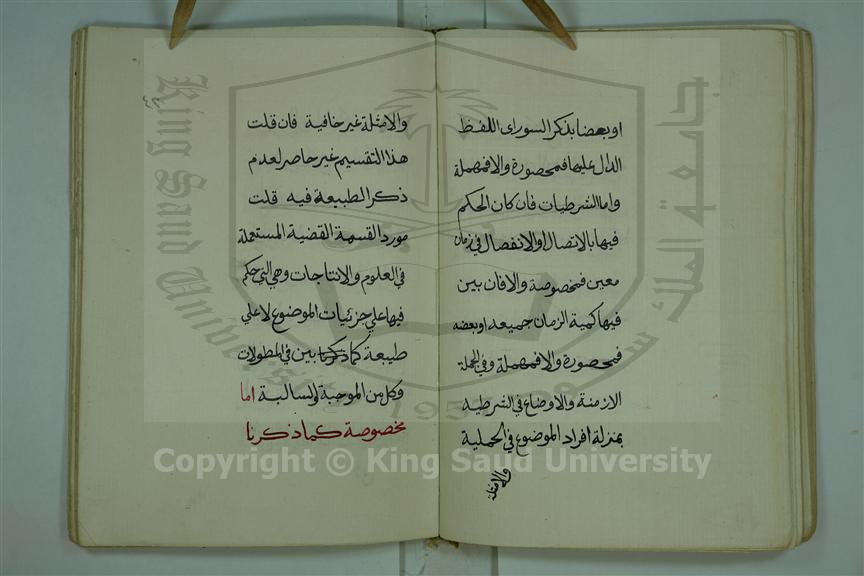 او بعضا بذكر السور اى اللفظ
الدال عليها فمحصورة والا فمهملة
واما الشرطيات فان كان الحكم
فيها بالاتصال او الانفصال فى زمان
معين فمخصوصة والا فان بين
فيها كمية الزمان جميعه او بعضه
فمحصورة والا فمهملة وفى الجملة
الازمنة والاوضاع فى الشرطيه
بمنزلة افراد الموضوع فى الحملية
والامثلة
والامثلة غير خافية فان قلت
هذا التقسيم غير حاصر لعدم
ذكر الطبيعة فيه قلت
مورد القسمة القضية المستعملة
فى العلوم والانتاجات وهى التى حكم
فيها على جزئيات الموضوع لا على
طبيعة كما بين فى المطولات
وكل من الموجبة والسالبة اما
مخصوصة كما ذكرنا
جامعة الملك سعود
King Saud University
1957
Copyright © King Saud University